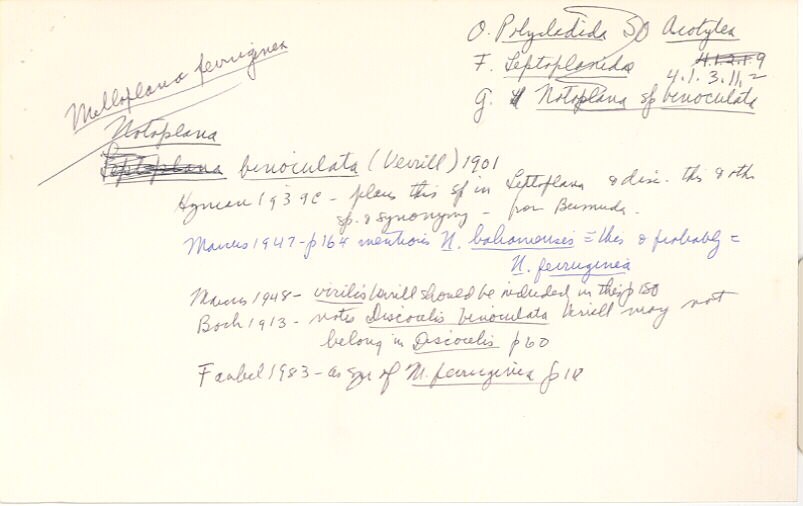 O. Polycladida SO Acotylea
F. Leptoplanidae 4.1.2.1.9
4.1.3.11.2
G. Notoplana sp binoculata
Melloplana ferruginea
Notoplana
Leptoplana binoculata (Verrill) 1901
Hyman 1939c - places this sp in Leptoplana & disc. this & oth
sp. & synonymy - from Bermuda.
Marcus 1947 - p164 mentions N. bahamensis = this & probably =
N. ferruginea
Marcus 1948 - virilis Verrill should be included in this p180
Bock 1913 - notes Discocelis binoculata Verrill may not
belong in Discocelis p60
Faubel 1983 - as syn of M. ferruginea p18